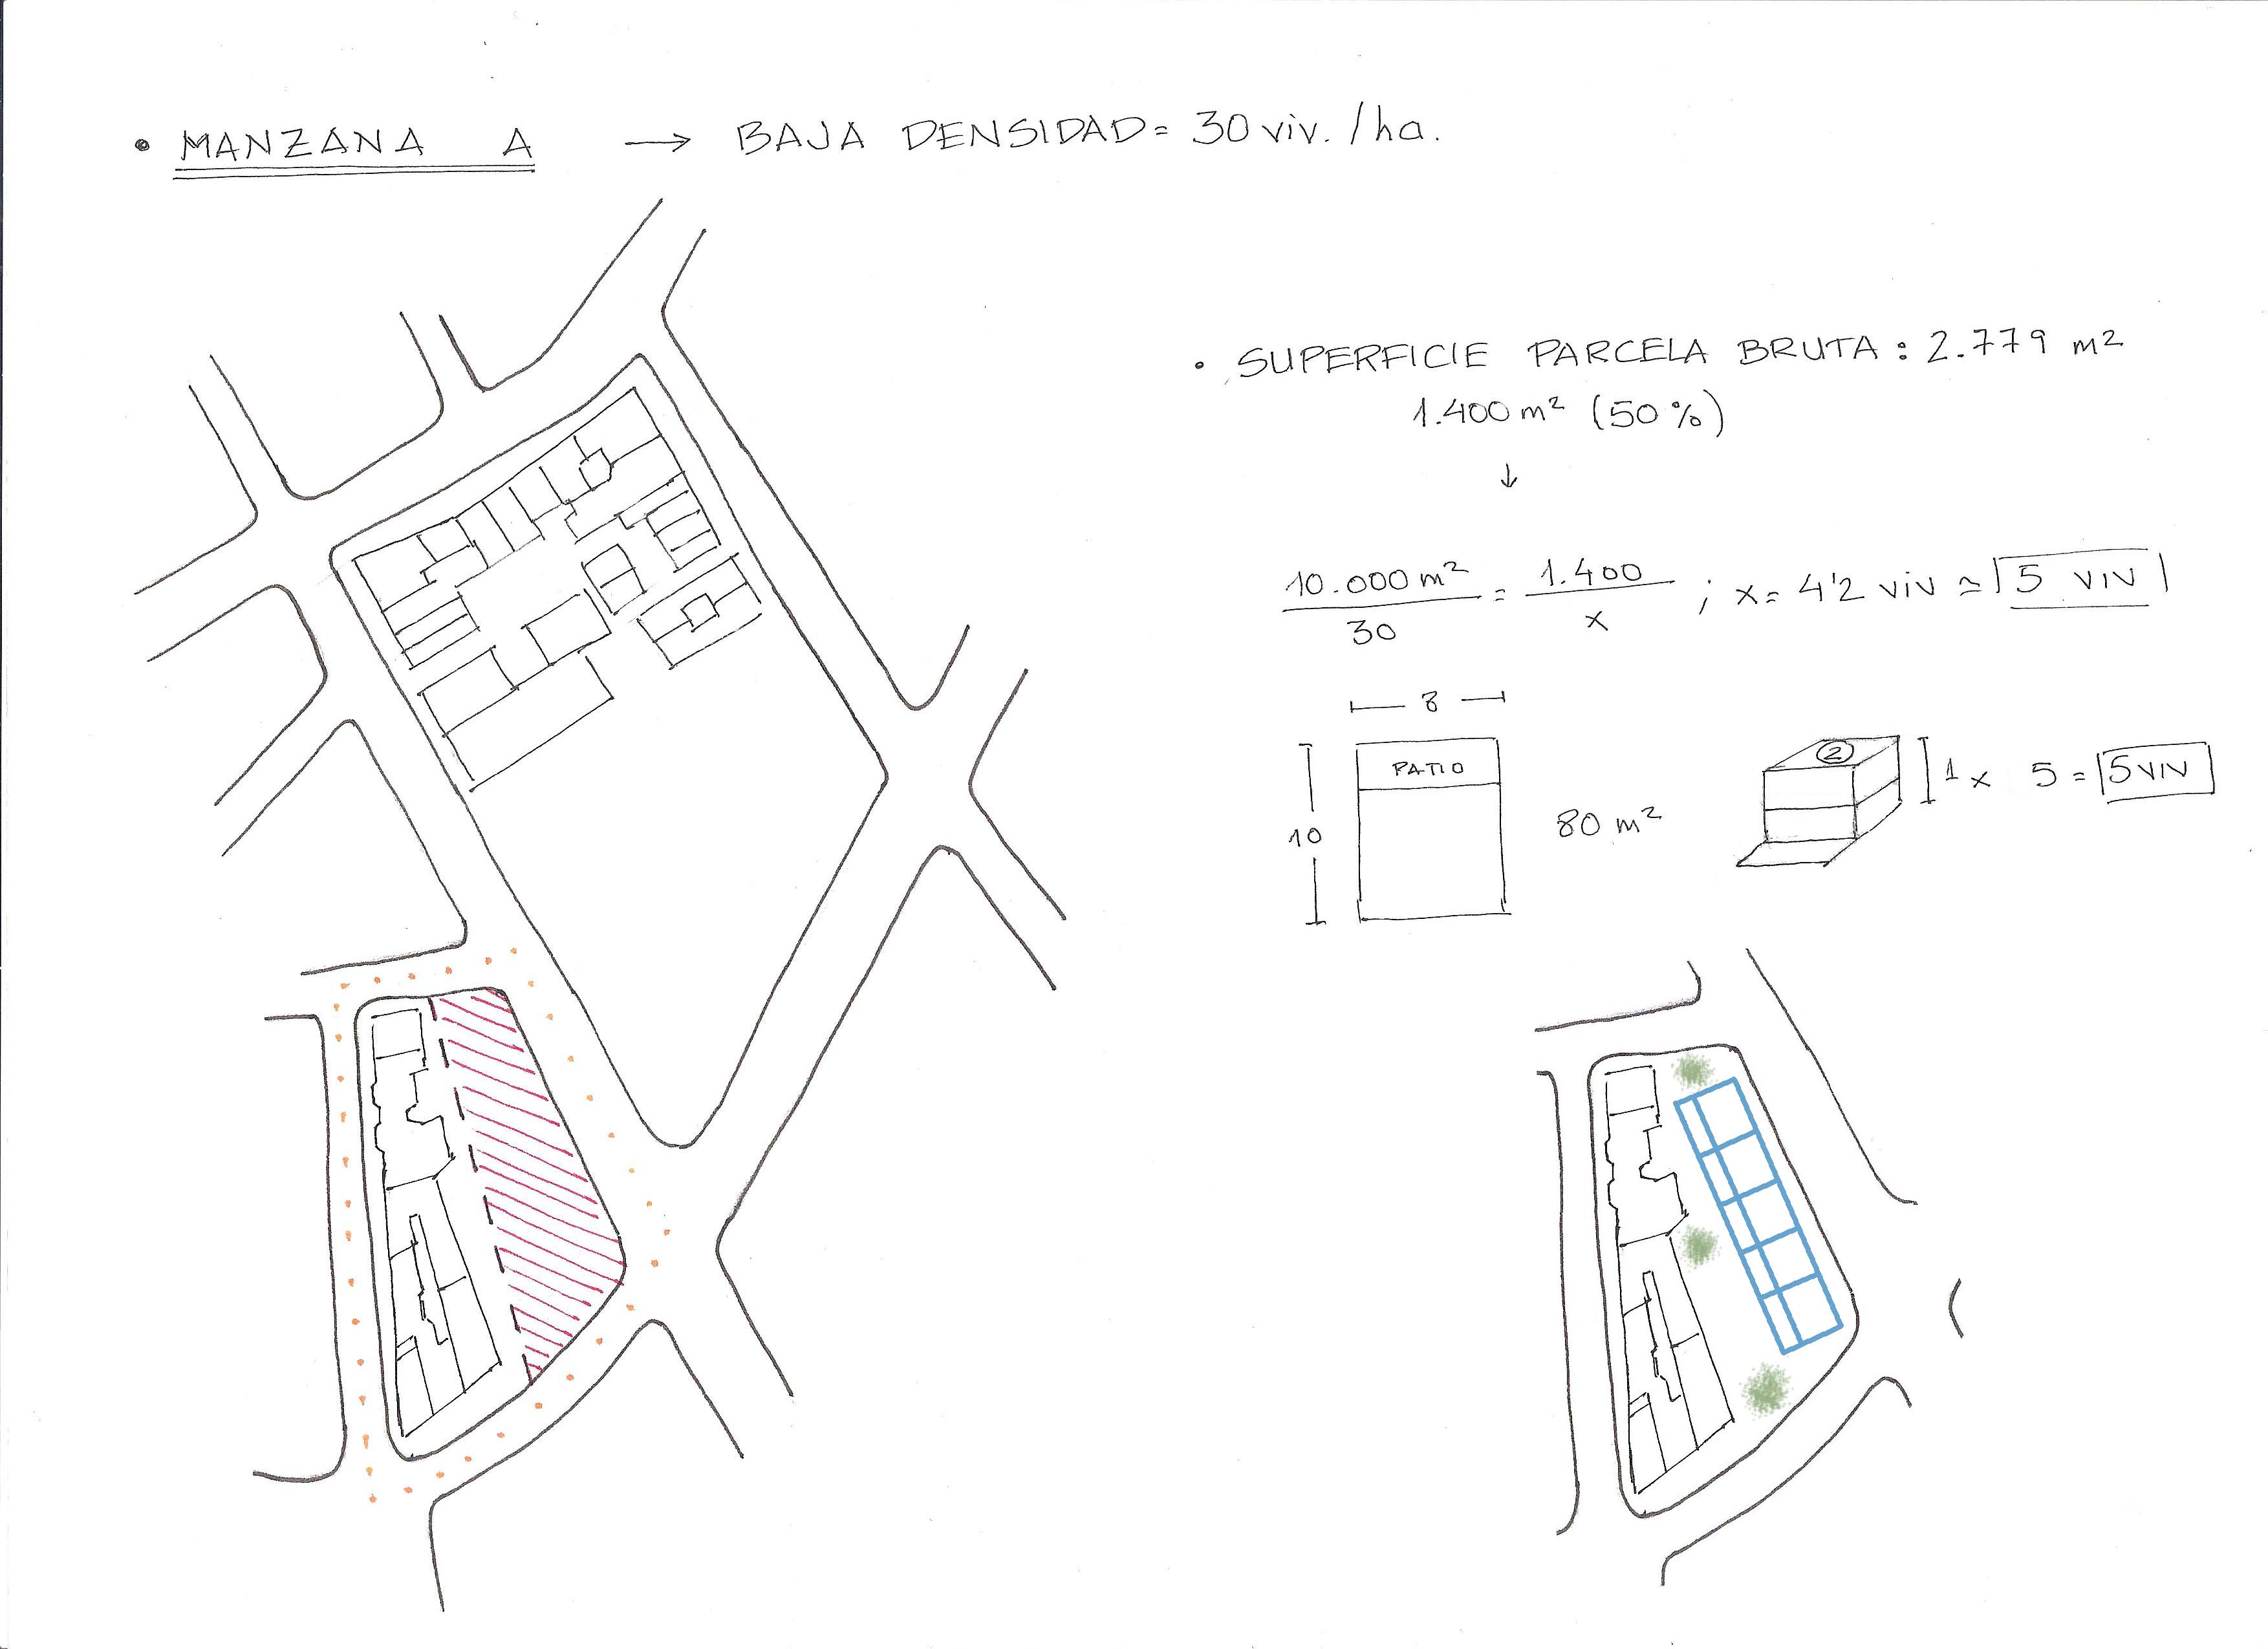 • MANZANA A → BAJA DENSIDAD = 30 viv. / ha.
• SUPERFICIE PARCELA BRUTA : 2.779 m²
1.400 m² (50 %)
↓
10.000 m² / 30 = 1.400 / x ; x = 4'2 viv ≃ 5 VIV
8
PATIO
10
80 m²
2
1 x 5 = 5 VIV